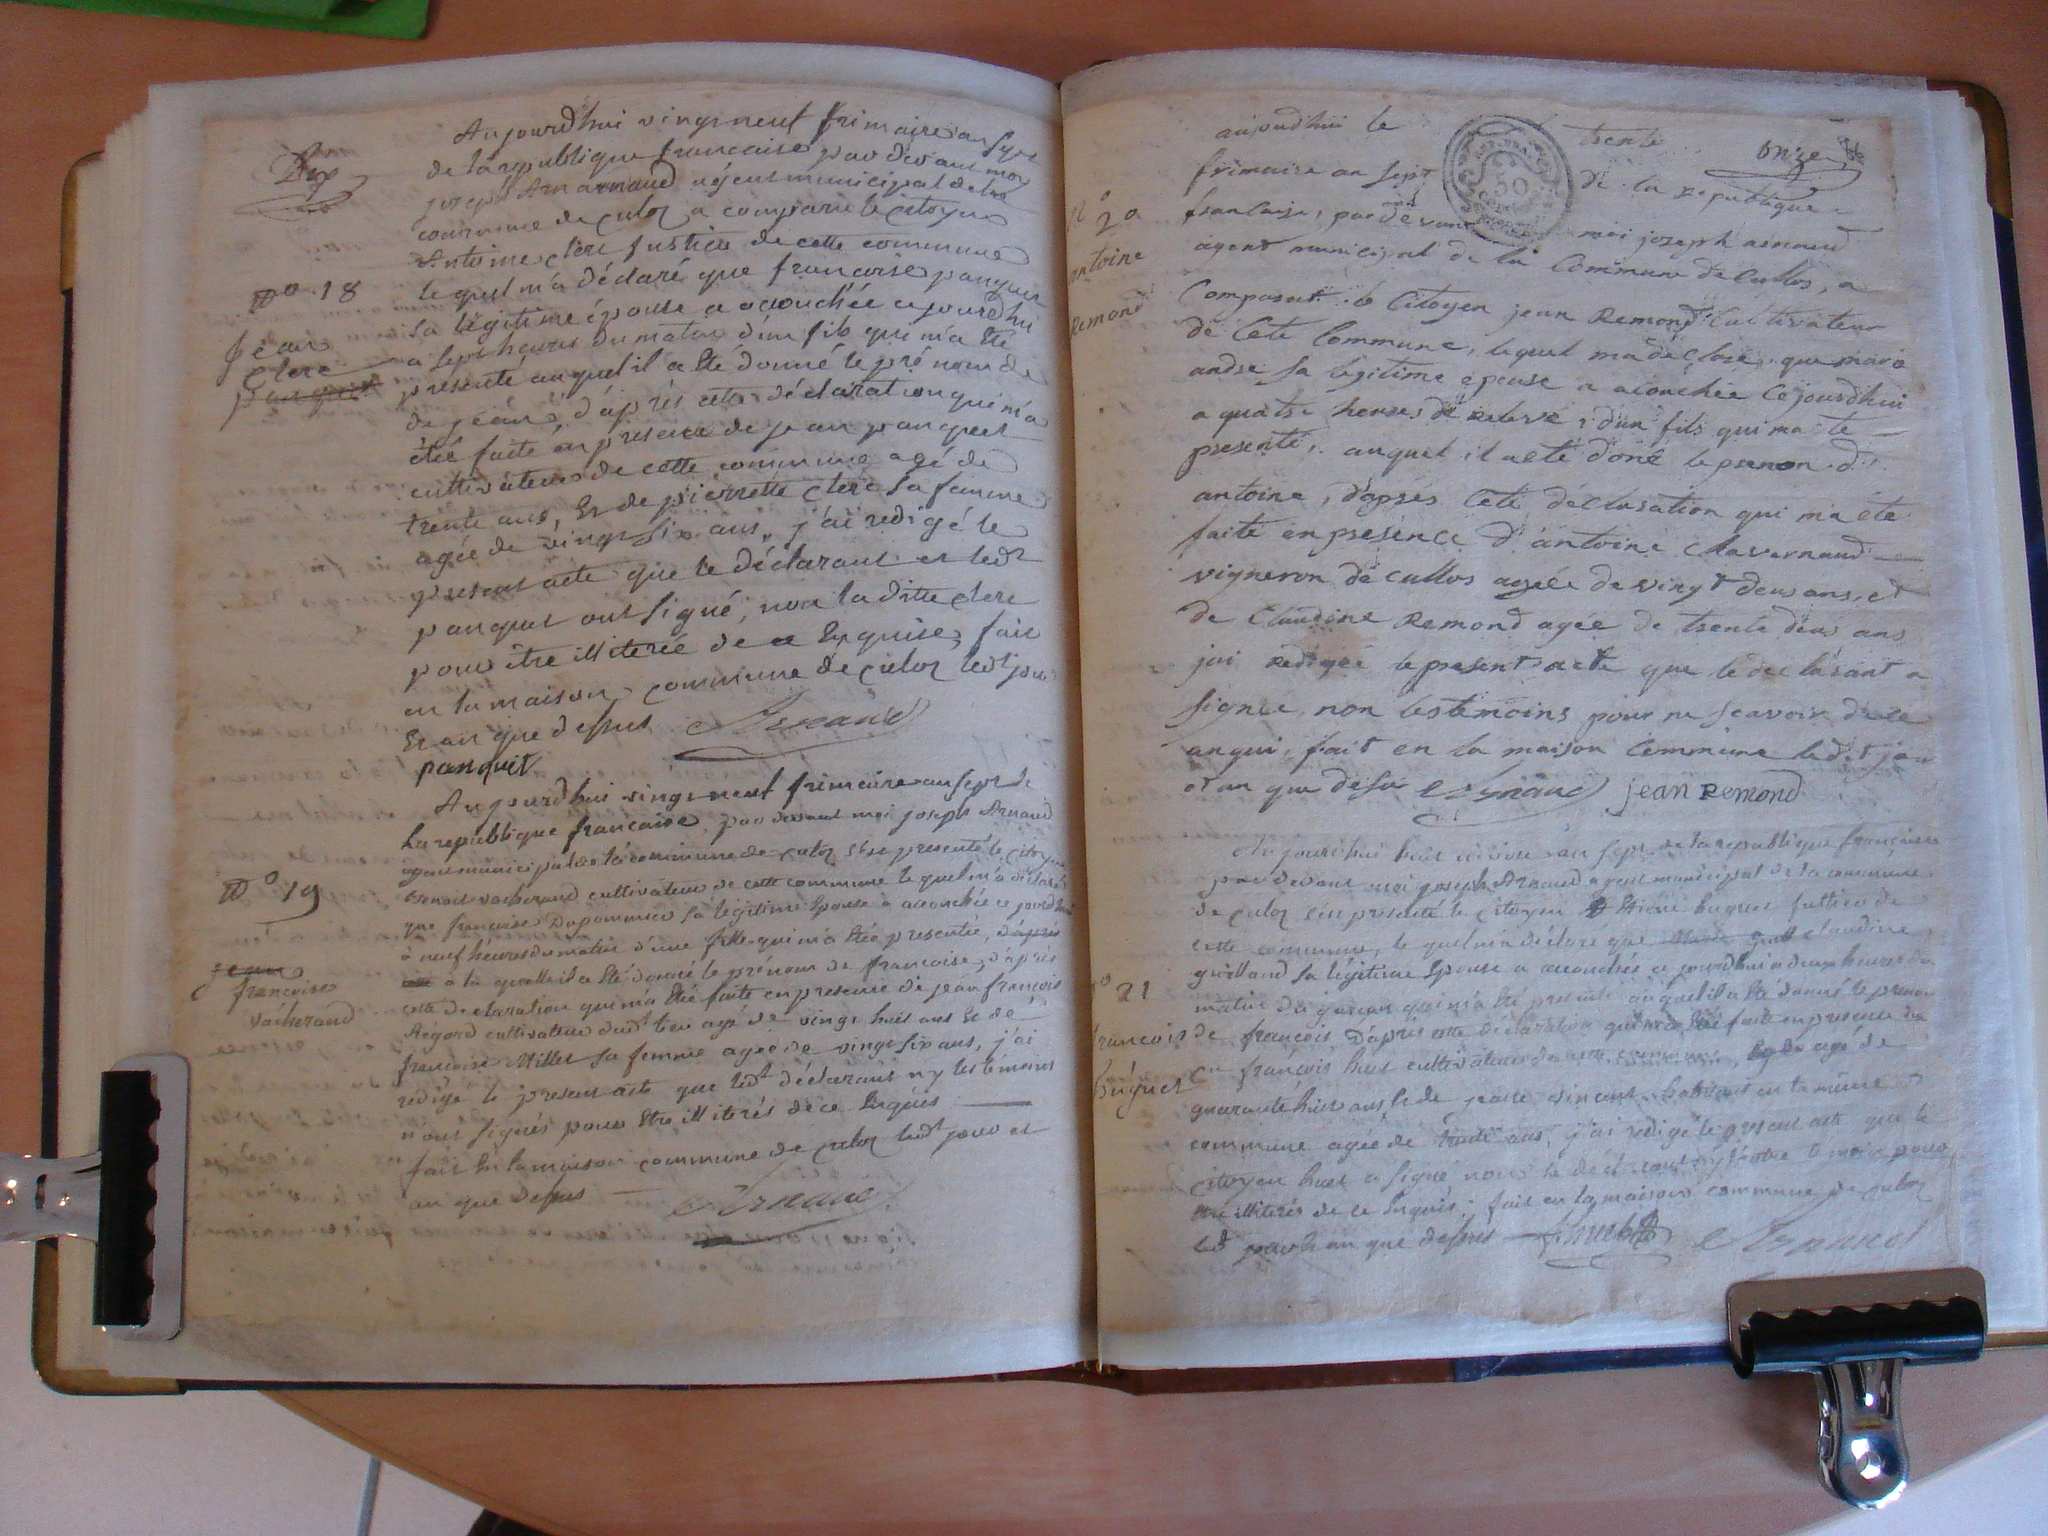 Dix
Aujourdhui vingt neuf frimaire an Sept
de la republique francaise par devant moy
joseph Arnarnaud agent municipal de la
commune de culoz a comparu le citoyen
Antoine clerc fustier de cette commune
No 18
le quel m'a déclaré que francoise panquet
sa légitime épouse a acouchée ce jourdhui
jean
clerc
panquet
a sept heures du matin d'un fils qui m'a été
presenté auquel il a été donné le pré nom de
de jean, d'après cette déclaration qui m'a
été faite en presence de jean panquet
cultivateur de cette commune agé de
trente ans, Et de pierrette clerc sa femme
agée de vingt six ans, j'ai redigé le
present acte que le déclarant et ledt
panquet ont signé, non la ditte clerc
pour être illiterée de ce Enquise, fait
en la maison commune de culoz ledt jour
Et an que dessus Arnaud
panquit
Aujourdhui vingt neuf frimaire an sept de
la republique francaise, par devant moi joseph Arnaud
agent municipal de la commune de culoz s'est presenté le citoyen
No 19
Benoit vacherand cultivateur de cette commune le quel m'a déclaré
que francoise Dupommier sa légitime Epouse a acouchée ce jourdhui
à neuf heures du matin d'une fille qui m'a été presentée,
jean
francoise
vacherand
à la quelle il a été donné le prénom de francoise, d'après
cette déclaration qui m'a été faite en presence de jean francois
cultivateur dudt lieu agé de vingt huit ans Et de
francoise Millet sa femme agée de vingt six ans, j'ai
redigé le present acte que ledt déclarant n'y les témoins
n'ont signés pour Etre illiterés de ce Enquis
fait En la maison commune de culoz ledt jour et
an que dessus Arnaud
onze
aujourdhui le trente
frimaire an sept de la republique
No 20
antoine
Remond
francaise, par devant moi jozeph arnaud
agent municipal de la Commune de Cullos, a
Comparut le Citoyen jean Remond Cultivateur
de Cete Commune, lequel ma déclaré que marie
andre sa légitime epouse a acouchée Cejourdhui
a quatre heures de relevé, d'un fils qui ma été
presenté, auquel il a eté doné le prenon d
antoine, d'aprés Cete déclaration qui ma été
faite en presence d'antoine Chavernaud
vigneron de cullos agée de vingt deus ans, et
de Claudine Remond agée de trente deus ans
jai redigée le present acte que le declarant a
signée non les temoins pour ne scavoir de ce
anqui, fait en la maison Commune ledit jou
et an que desu Arnaud jean Remond
Aujourd'hui huit nivose an sept de la republique francaise
par devant moi joseph Arnaud agent municipal de la commune
de culoz s'est presenté le citoyen Etiene huguet fustier de
cette commune, le quel m'a déclaré que claudine
guilland sa légitime Epouse a acouchée ce jourdhui a deux heures du
No 21
francois
huguet
matin du garcon qui m'a été presenté auquel il a été donné le prenom
de francois, D'après cette déclaration qui m'a été faite en presence du
Cn francois huet cultivateur de cette commune, agé de
quarante huit ans Et de vincent habitant en la même
commune agée de trente ans, j'ai redigé le present acte que le
citoyen huet a signé non le déclarant ny l'autre temoin pour
Etre illiterés de ce Enquis; fait en la maison commune de culoz
led jour Et an que dessus huet Arnaud